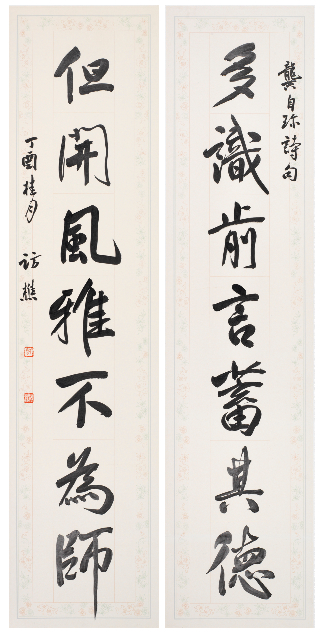 龔自珍詩句
多識前言蓄其德
但開風雅不為師
丁酉桂月
訪樵